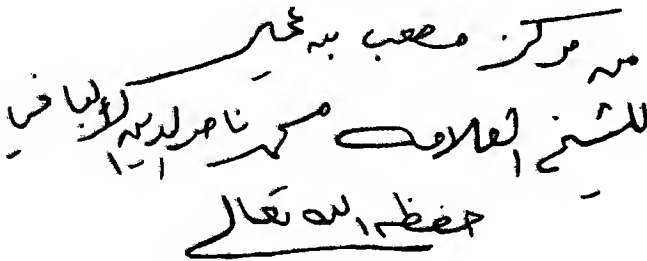 من مركز مصعب بن عمير
للشيخ العلامة محمد ناصر الدين الألباني
حفظه الله تعالى